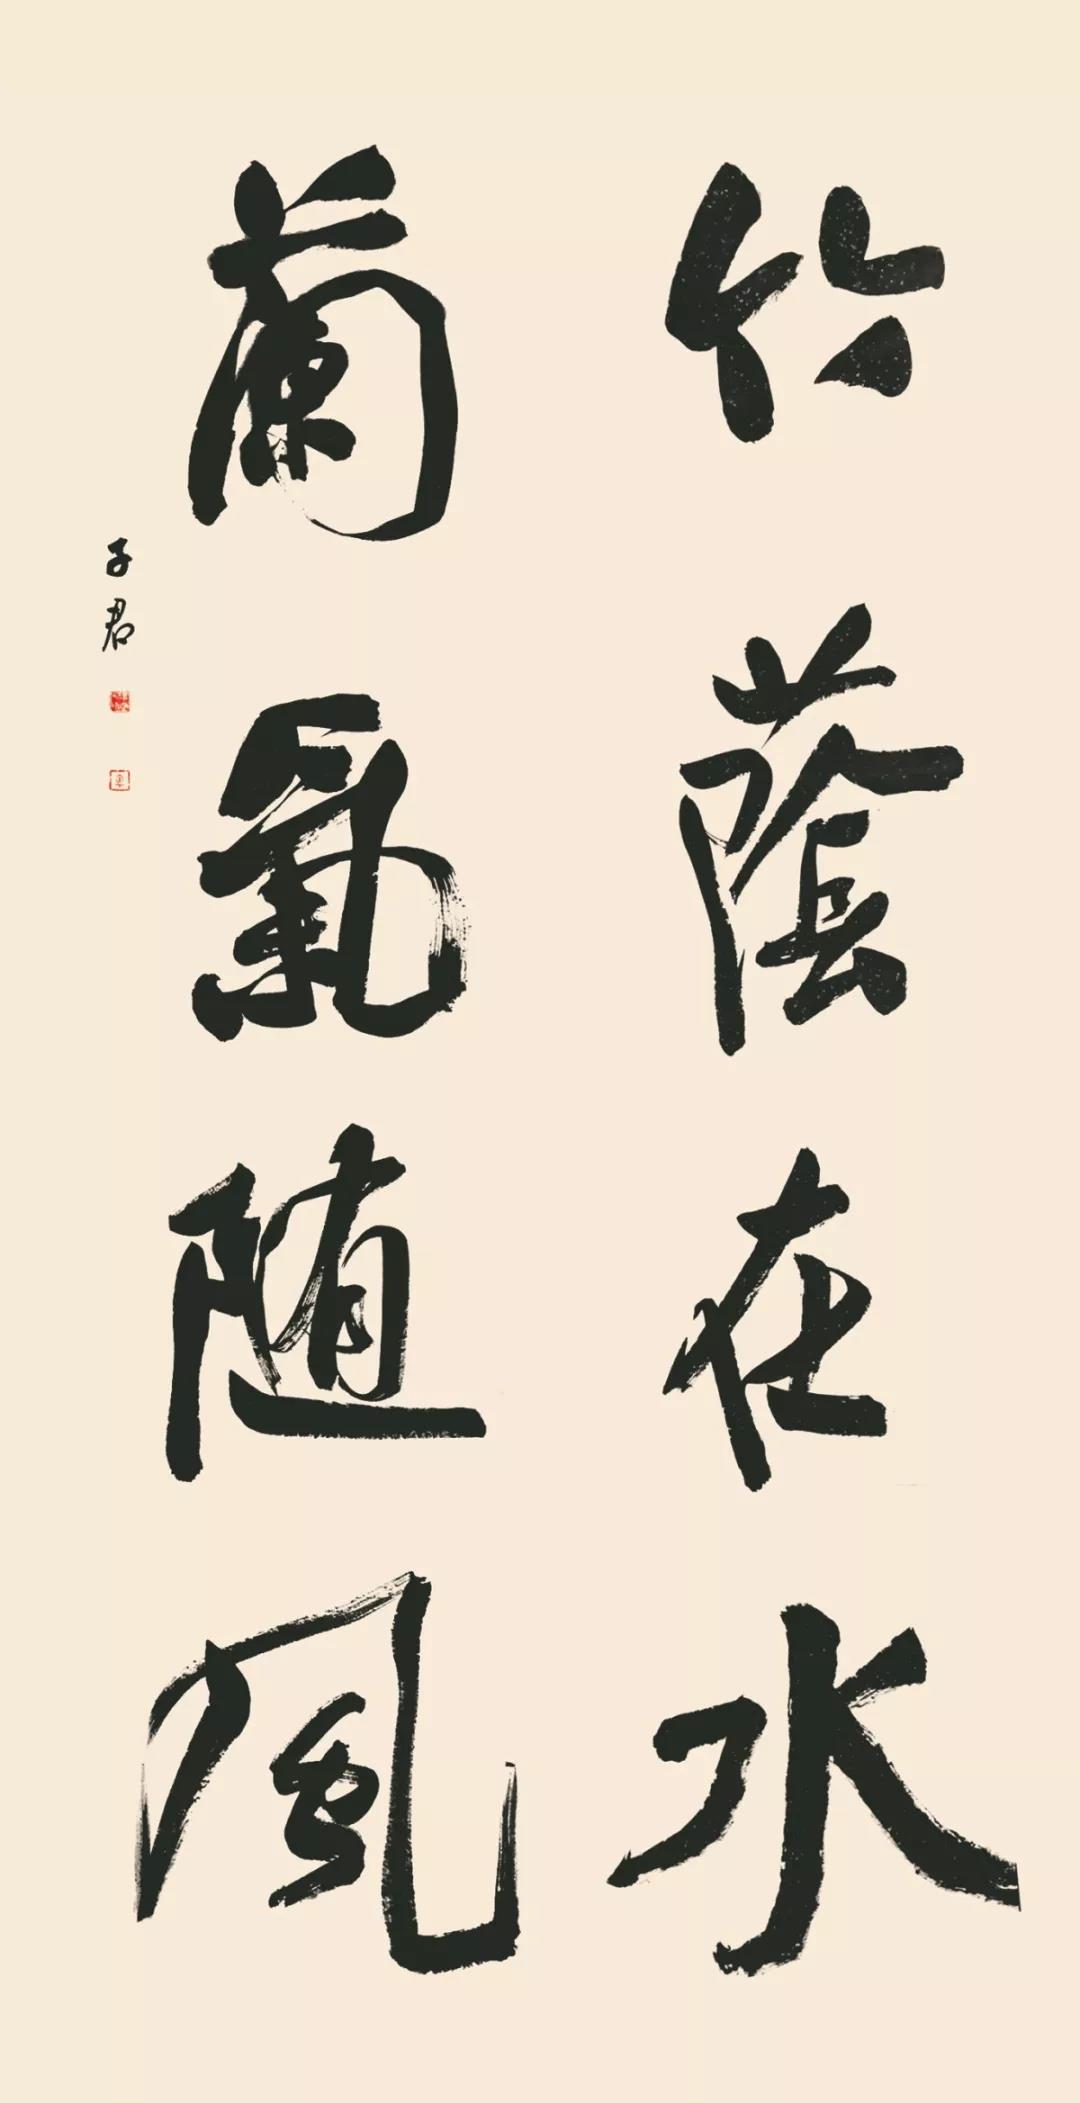 竹蔭在水
蘭氣随風
子君